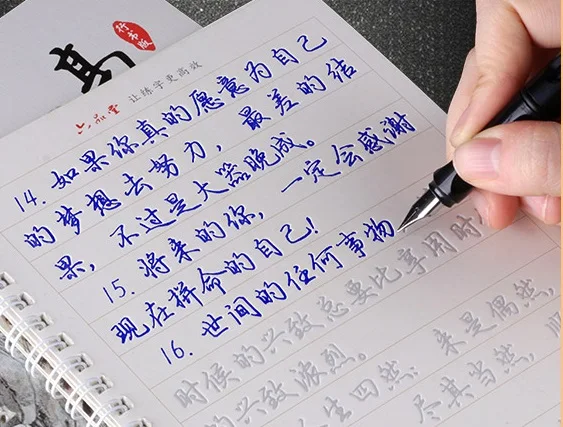 行书版
六品堂
让练字更高效
14. 如果你真的愿意为自己
的梦想去努力，最差的结
果，不过是大器晚成。
15. 将来的你，一定会感谢
现在拼命的自己！
16. 世间的任何事物
享用时
时候的兴致总要比
的兴致浓烈。
来是偶然，
生四然：尽其当然，顺